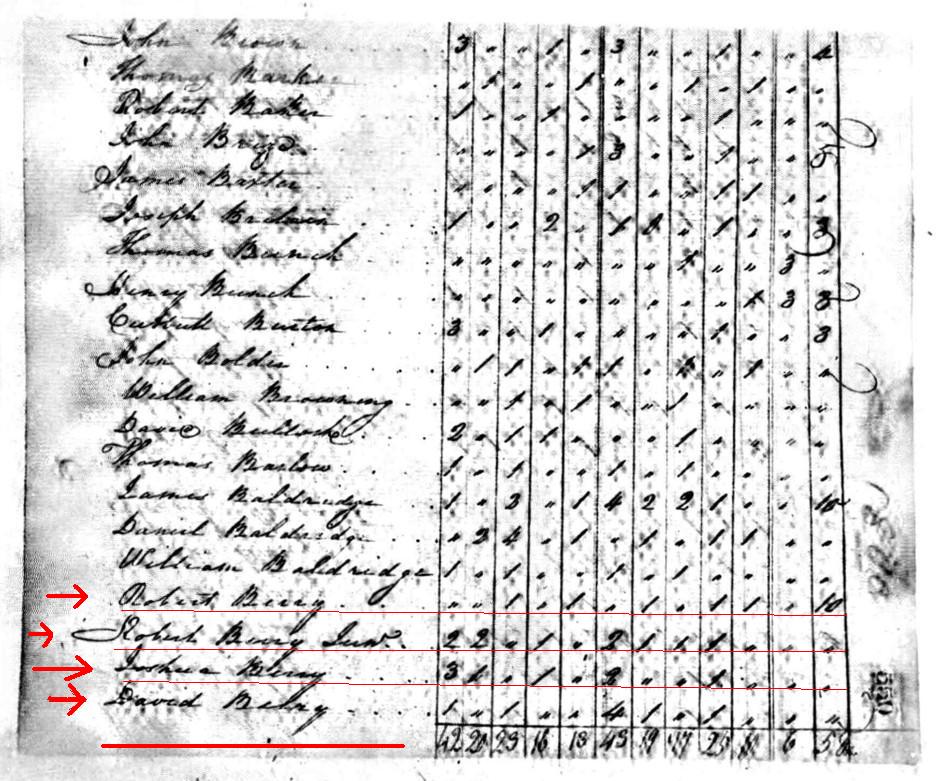 John Brown 3 " " 1 " 3 " " 1 " " 4
Thomas Barker " 1 " " 1 " " 1 " 1 " "
Robert Baker 1 " " 1 " " " 1 " " "
John " " " " 1 3 " " 1 " " 5
James Baxter " " " " 1 1 " " 1 1 " "
Joseph 1 " " 2 " 1 1 " 1 " " 3
Thomas Bunch " " " " " " " 1 " " 3 "
Henry Bunch " " " " " " " " " 1 3 3
Burton 3 " " 1 " " " " 1 " " 3
John Bolden " 1 1 " 1 1 " 1 " 1 " "
William Browning " " 1 " 1 " " 1 " " " "
David Bullock 2 " 1 1 " " " 1 " " " "
Thomas Barlow 1 " 1 " " 1 " 1 " " " "
James Baldredge 1 " 3 " 1 4 2 2 1 " " 10
Daniel Baldridge " 2 4 " 1 " 1 " 1 1 " "
William Baldridge 1 " 1 " " 1 " 1 " " " "
Robert Berry " " 1 " 1 " " 1 " 1 1 " 10
Robert Berry Junr. 2 2 " 1 " 2 1 1 1 " " "
Joshua Berry 3 1 " 1 " 2 " " 1 " " "
David Berry 1 " 1 " " 4 1 " 1 " " "
42 20 23 16 18 43 19 17 23 11 6